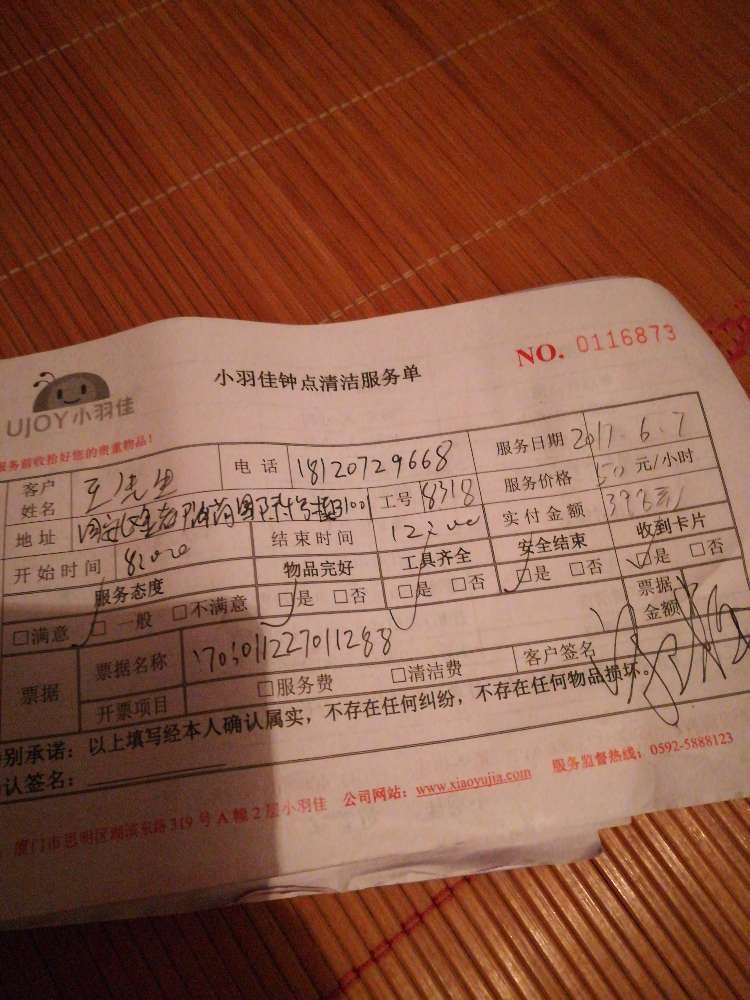 NO. 0116873
小羽佳钟点清洁服务单
UJOY小羽佳
服务前收拾好您的贵重物品！
客户姓名 王先生 电话 18120729668 服务日期 2017.6.7
地址 1001 工号 8318 服务价格 50 元/小时
开始时间 8:00 结束时间 12:00 实付金额
服务态度 物品完好 工具齐全 安全结束 收到卡片
□满意 □一般 □不满意 □是 □否 □是 □否 □是 □否 □是 □否
票据 票据名称 1703011227011288 票据金额
开票项目 □服务费 □清洁费 客户签名
别承诺：以上填写经本人确认属实，不存在任何纠纷，不存在任何物品损坏。
认签名：
厦门市思明区湖滨东路319号A幢2层小羽佳 公司网站：www.xiaoyujia.com 服务监督热线：0592-5888123